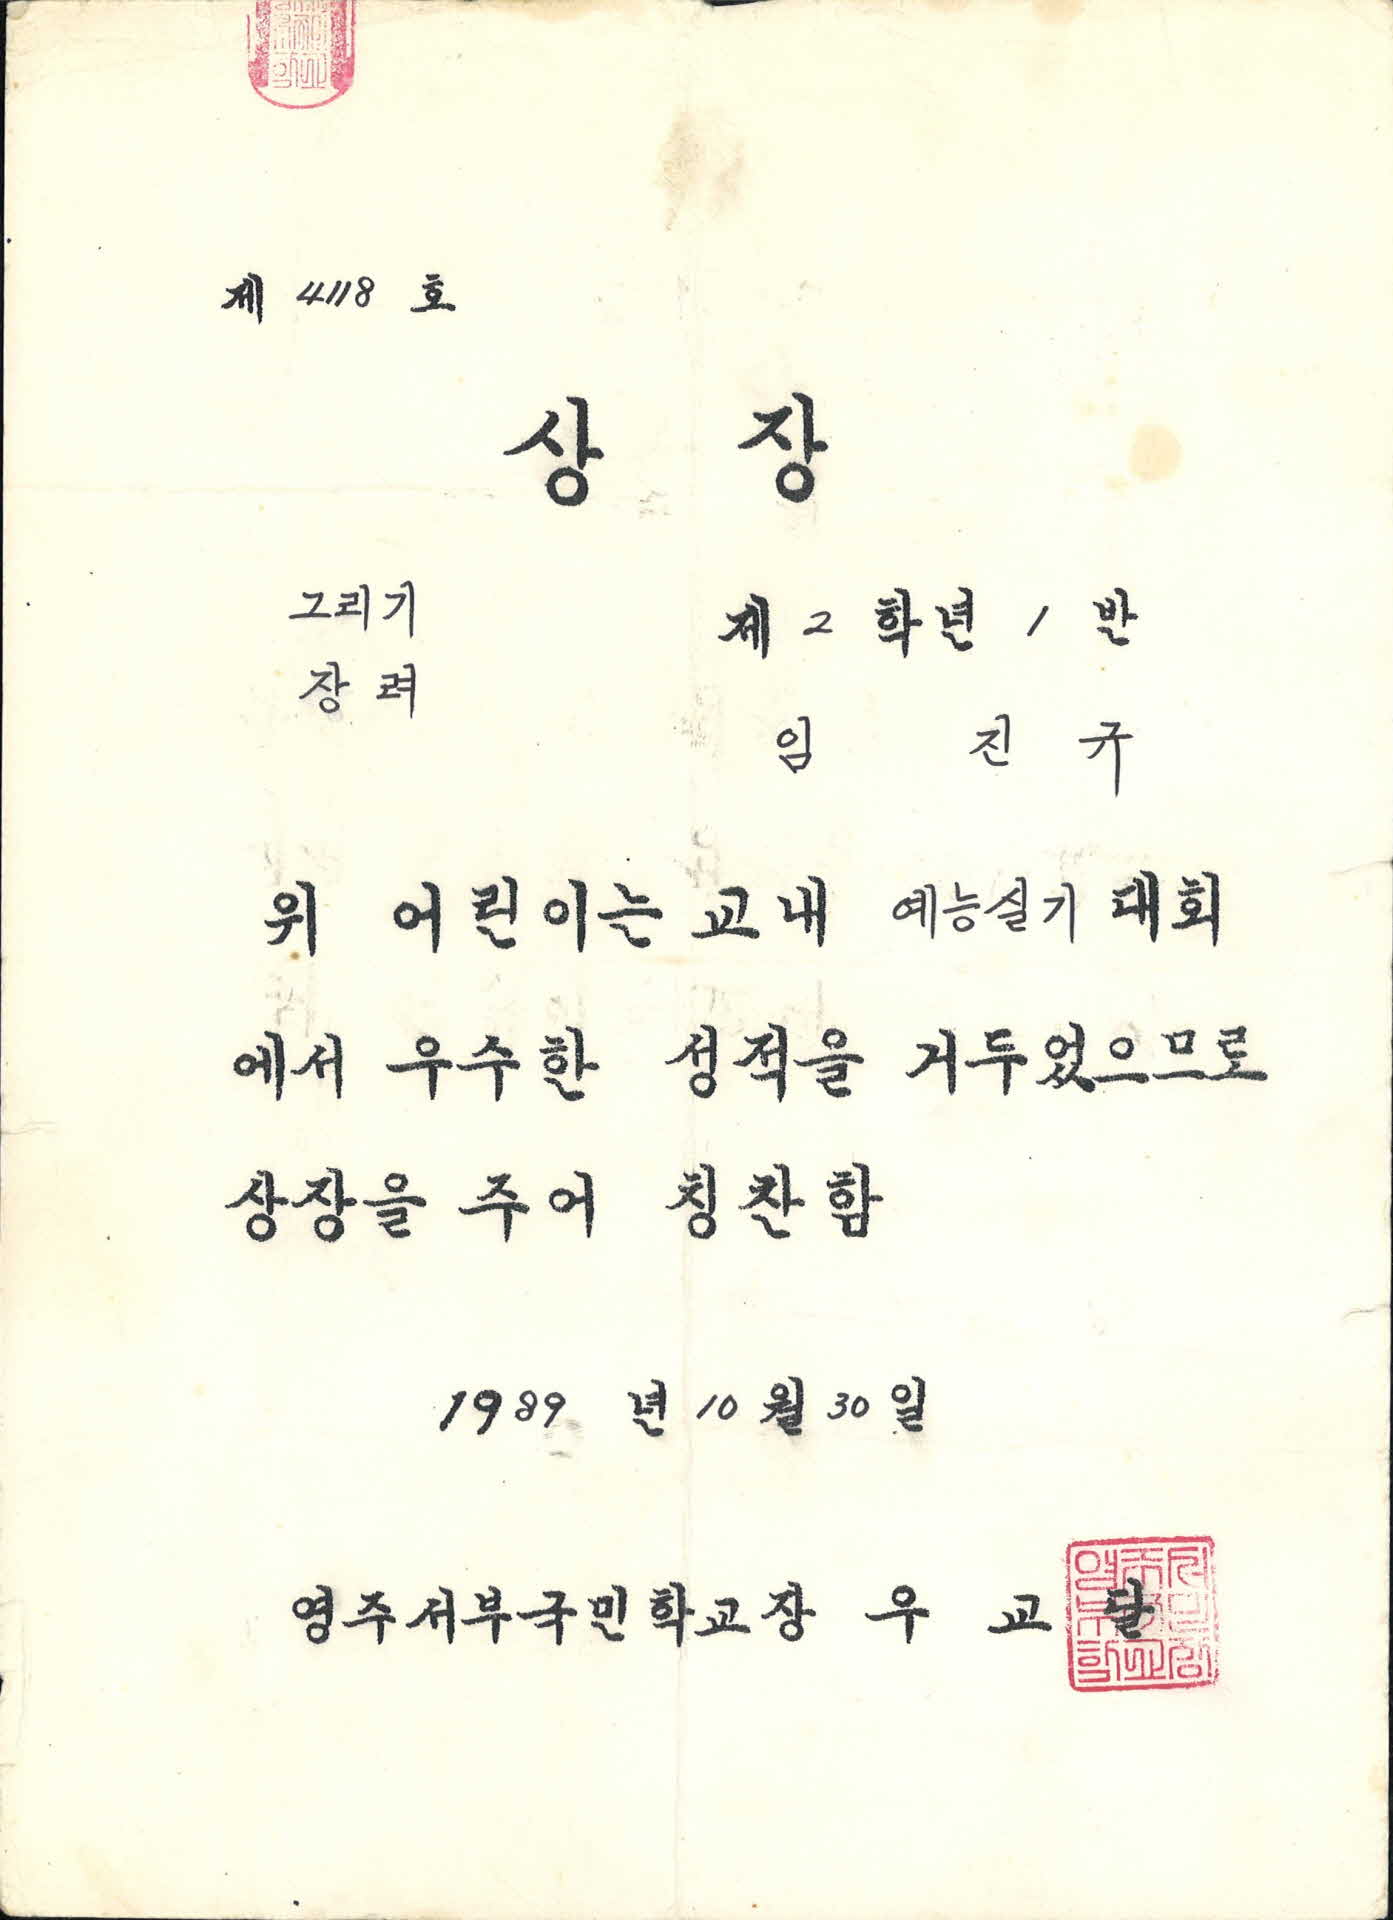 제 4118 호
상 장
그리기
장려
제 2 학년 1 반
임 진 규
위 어린이는 교내 예능실기 대회
에서 우수한 성적을 거두었으므로
상장을 주어 칭찬함
1989 년 10 월 30 일
영주서부국민학교장 우 교 달